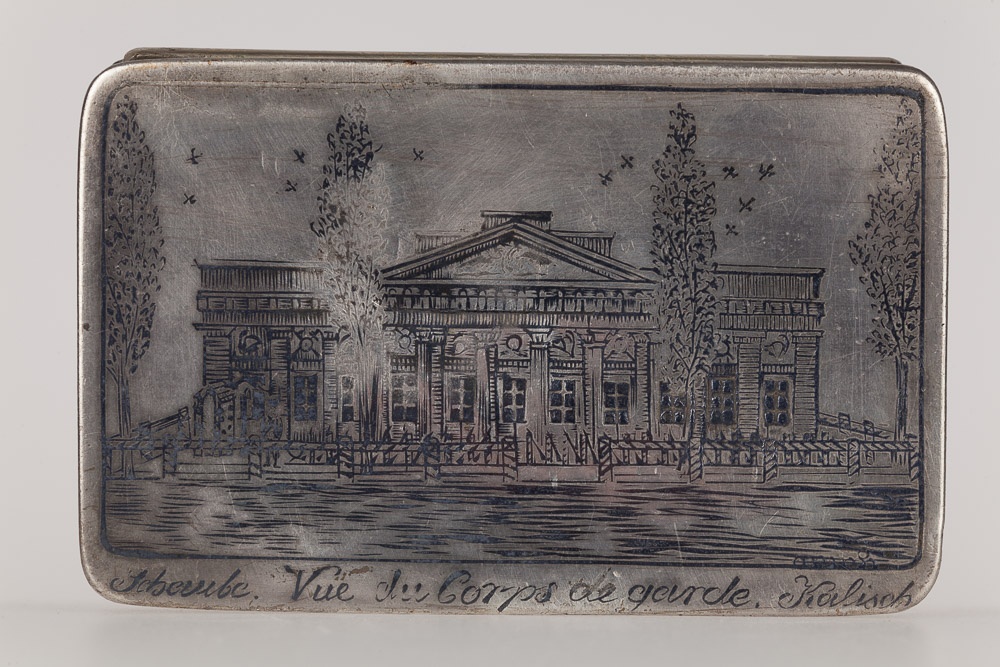 Schaube. Vuë du Corps de garde. Kalisch